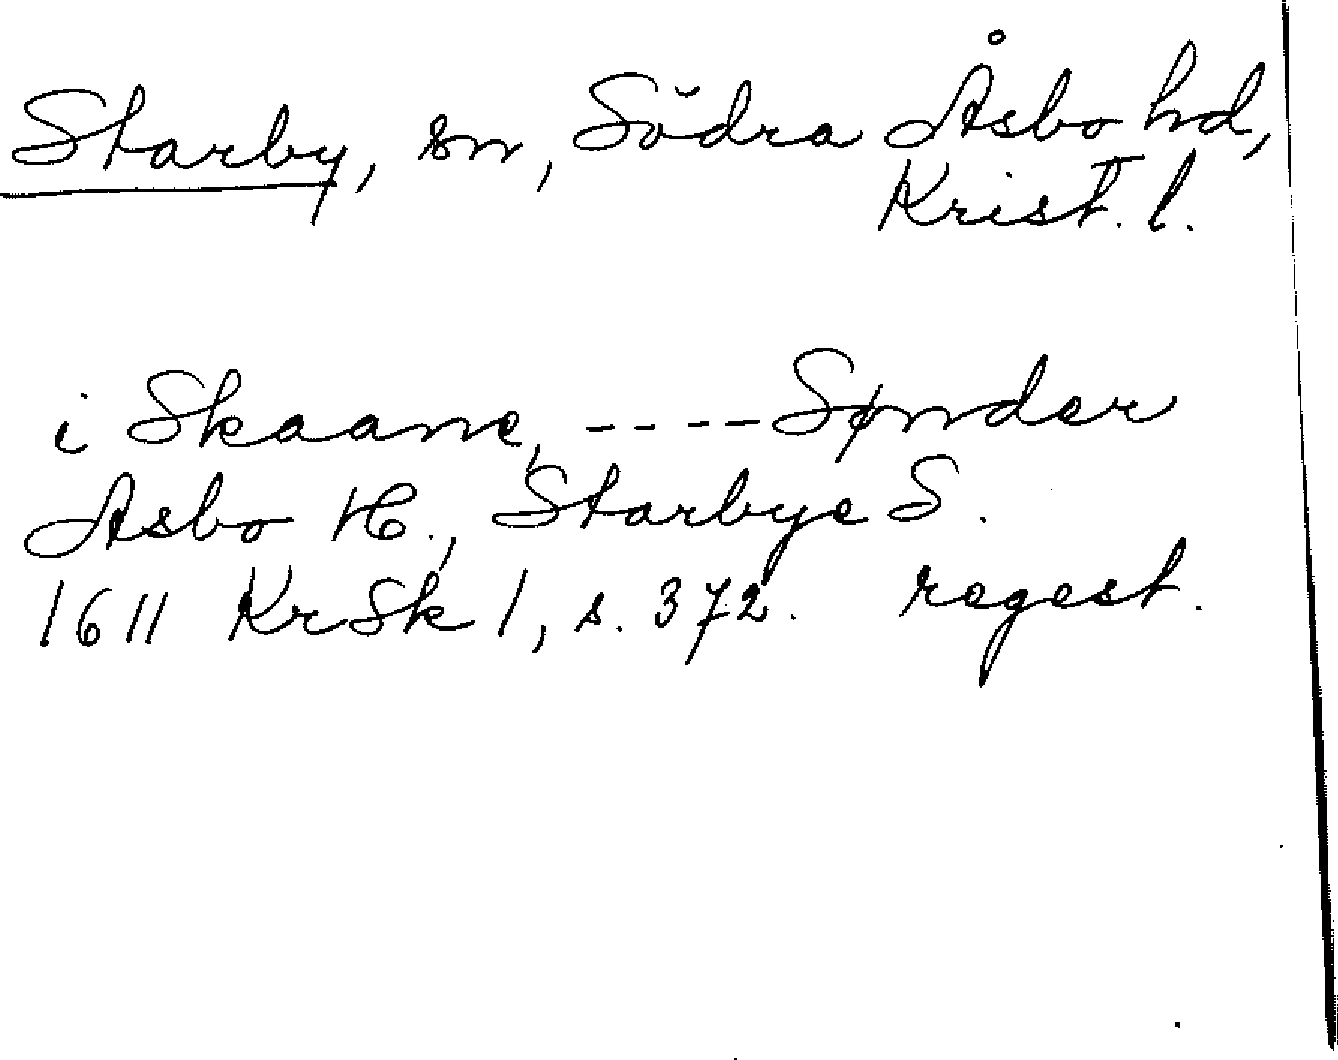 Starby, sn, Södra Åsbo hd,
Krist. l.
i Skaane, ---- Sønder
Asbo H., Starbye S.
1611 KrSk 1, s. 372. regest.